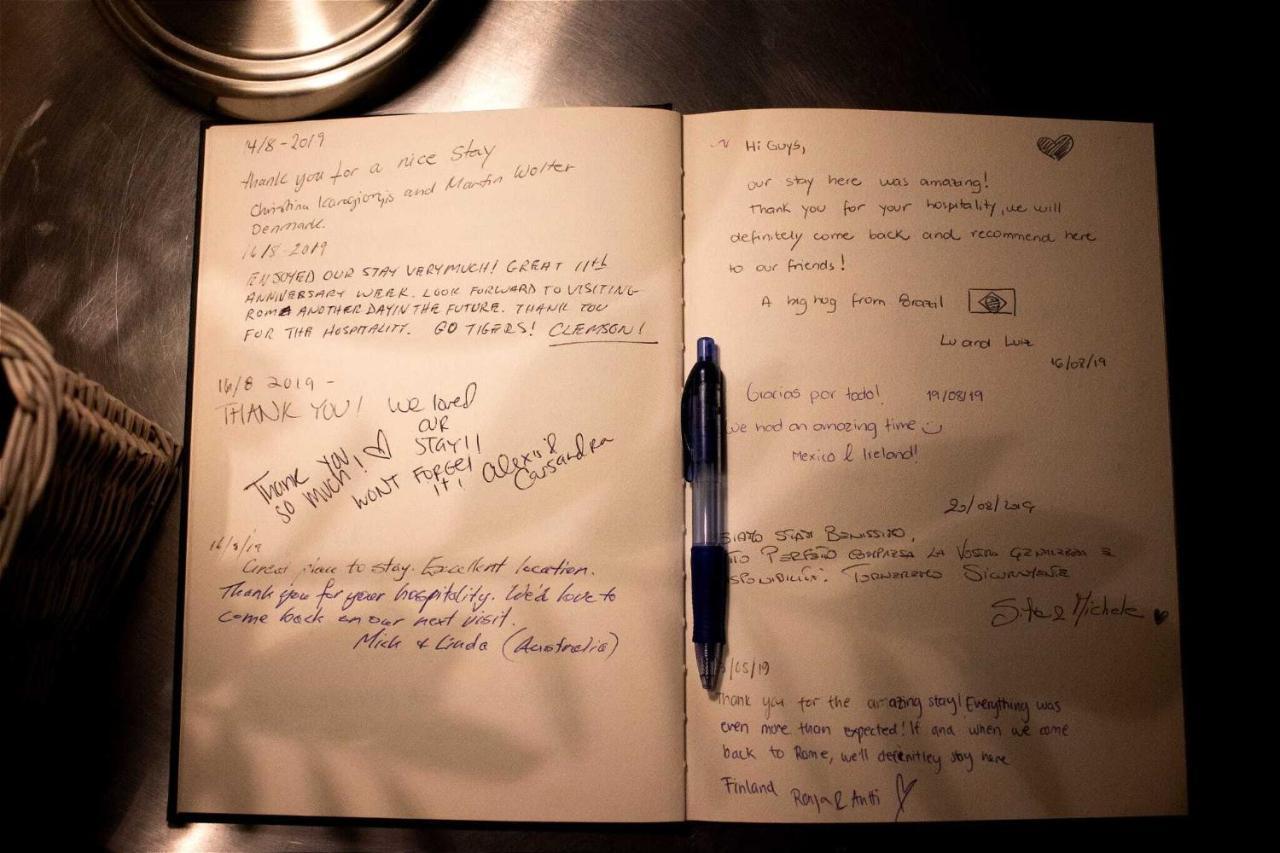 14/8-2019
thank you for a nice stay
Christina Karagiorgis and Martin Wolter
Denmark.
16/8-2019
ENJOYED OUR STAY VERY MUCH! GREAT 11th
ANNIVERSARY WEEK. LOOK FORWARD TO VISITING
ROME ANOTHER DAY IN THE FUTURE. THANK YOU
FOR THE HOSPITALITY. GO TIGERS! CLEMSON!
16/8 2019 -
THANK YOU! We loved
OUR
STAY!!
WON'T FORGET
IT!
Thank you
so much!
Alexis &
Cassandra
16/8/19
Great place to stay. Excellent location.
Thank you for your hospitality. We'd love to
come back on our next visit.
Mick & Linda (Australia)
Hi Guys,
our stay here was amazing!
Thank you for your hospitality, we will
definitely come back and recommend here
to our friends!
A big hug from Brazil
Lu and Luiz
16/08/19
Gracias por todo! 19/08/19
We had an amazing time
Mexico & Ireland!
20/08/2019
STATI BENISSIMO,
PERFETTO COMPRESA LA VOSTRA GENTILEZZA E
TORNEREMO SICURAMENTE
& Michele
/05/19
Thank you for the amazing stay! Everything was
even more than expected! If and when we come
back to Rome, we'll defenitley stay here
Finland Ronja & Antti